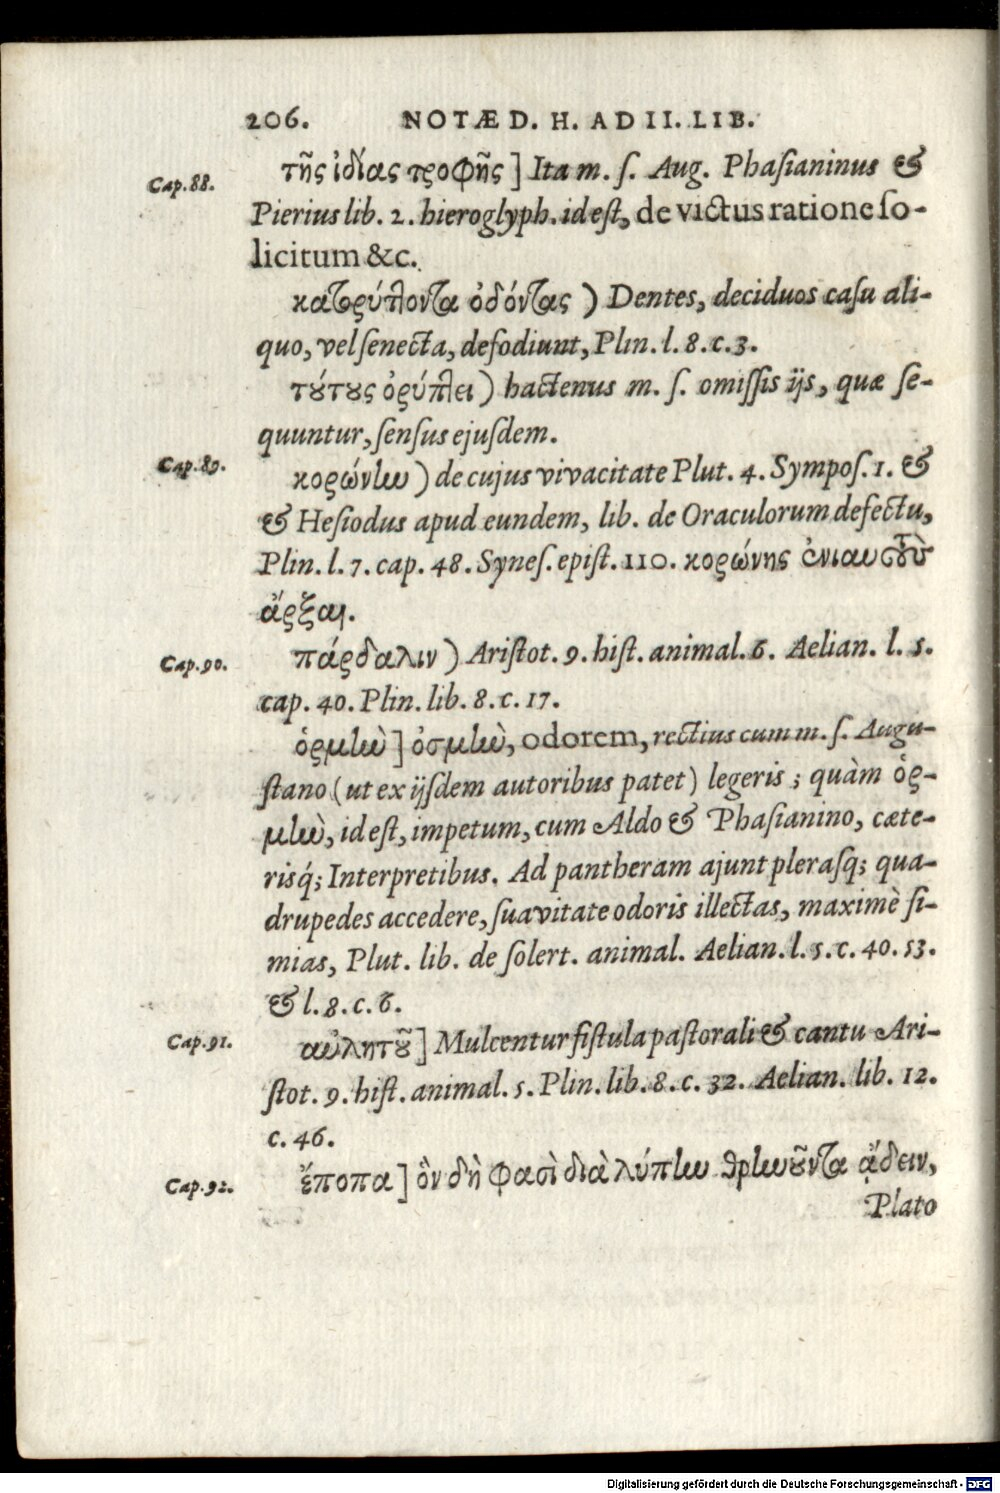 206. NOTÆ D. H. AD II. LIB.
Cap. 88. τῆς ἰδίας τροφῆς] Ita m. ſ. Aug. Phaſianinus &
Pierius lib. 2. hieroglyph. id eſt, de victus ratione ſo-
licitum &c.
κατορύττοντα ὀδόντας) Dentes, deciduos caſu ali-
quo, vel ſenecta, defodiunt, Plin. l. 8. c. 3.
τούτους ὀρύττει) hactenus m. ſ. omiſſis ijs, quæ ſe-
quuntur, ſenſus ejuſdem.
Cap. 89. κορώνην) de cujus vivacitate Plut. 4. Sympoſ. 1. &
& Heſiodus apud eundem, lib. de Oraculorum defectu,
Plin. l. 7. cap. 48. Syneſ. epiſt. 110. κορώνης ἐνιαυτοὺ
ἄρξαι.
Cap. 90. πάρδαλιν) Ariſtot. 9. hiſt. animal. 6. Aelian. l. 5.
cap. 40. Plin. lib. 8. c. 17.
ὁρμὴν] ὀσμὴν, odorem, rectius cum m. ſ. Augu-
ſtano (ut ex ijſdem autoribus patet) legeris; quàm ὁρ-
μὴν, id eſt, impetum, cum Aldo & Phaſianino, cæte-
risq́; Interpretibus. Ad pantheram ajunt plerasq; qua-
drupedes accedere, ſuavitate odoris illectas, maximè ſi-
mias, Plut. lib. de ſolert. animal. Aelian. l. 5. c. 40. 53.
& l. 8. c. 6.
Cap. 91. αὐλητοῦ] Mulcentur fiſtula paſtorali & cantu Ari-
ſtot. 9. hiſt. animal. 5. Plin. lib. 8. c. 32. Aelian. lib. 12.
c. 46.
Cap. 92. ἔποπα] ὃν δὴ φασὶ διὰ λύπην θρηνοῦντα ᾄδειν,
Plato
Digitalisierung gefördert durch die Deutsche Forschungsgemeinschaft - DFG